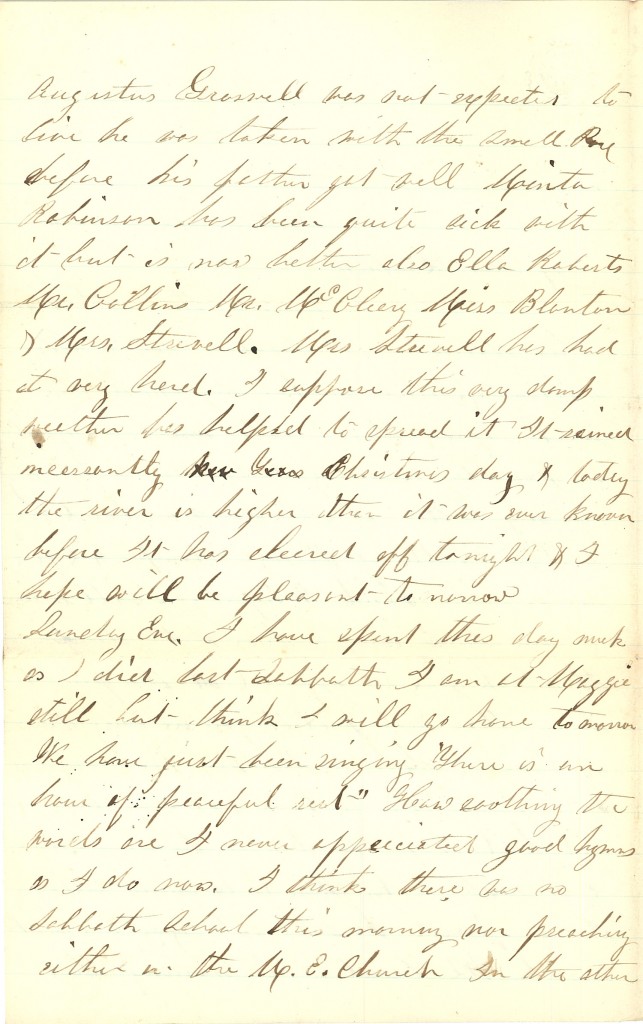 Augustus Grosvell was not expected to
live he was taken with the small Pox
before his father got well Minta
Robinson has been quite sick with
it but is now better also Ella Roberts
Mr. Collins Mr. McCleery Miss Blanton
& Mrs. Strevell. Mrs Strevell has had
it very hard. I suppose this very damp
weather has helped to spread it It rained
incessantly Christmas day & today
the river is higher than it was ever known
before It has cleared off tonight & I
hope will be pleasant to morrow
Sunday Eve. I have spent this day much
as I did last Sabbath I am at Maggie
still but think I will go home tomorrow
We have just been singing "There is an
hour of peaceful rest" How soothing the
words are I never appreciated good hymns
as I do now. I think there was no
Sabbath School this morning nor preaching
either in the M. E. Church In the other